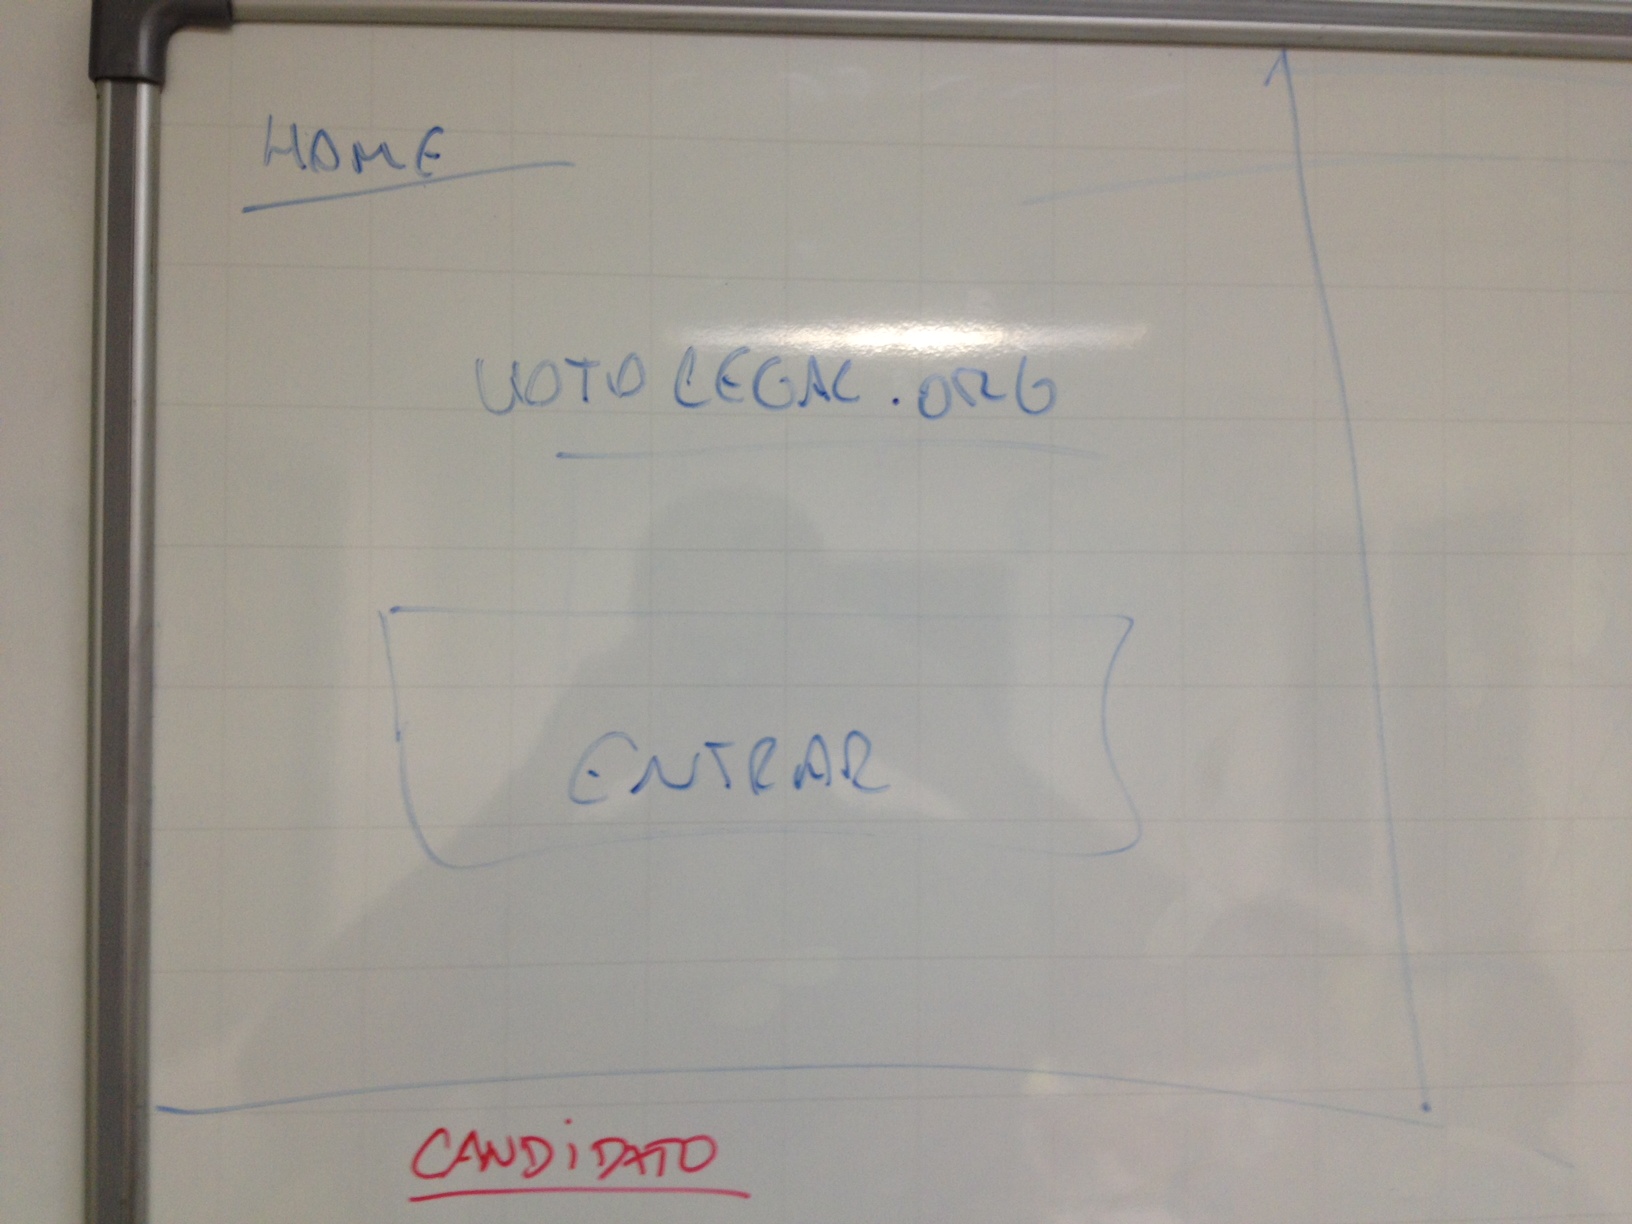 HOME
VOTOLEGAL.ORG
ENTRAR
CANDIDATO